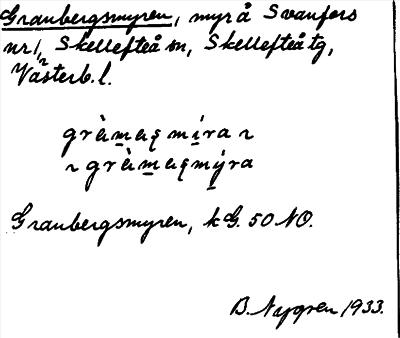 Granbergsmyren, myr å Svanfors
nr 1, Skellefteå sn, Skellefteå tg,
Västerb. l.
Granbergsmyren, kG. 50 NO.
B. Nygren 1933.